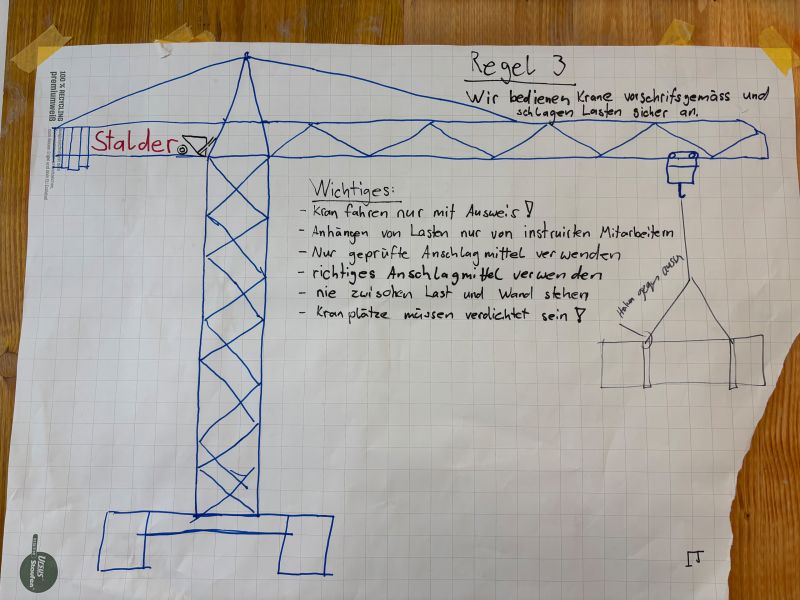 Regel 3
Wir bedienen Krane vorschrifsgemäss und
schlagen Lasten sicher an.
100 % RECYCLING
premiumweiß
Stalder
Wichtiges:
- Kran fahren nur mit Ausweis!
- Anhängen von Lasten nur von instruirten Mitarbeitern
- Nur geprüfte Anschlagmittel verwenden
- richtiges Anschlagmittel verwenden
- nie zwischen Last und Wand stehen
- Kranplätze müssen verdichtet sein!
gegen
URSUS
Staufen